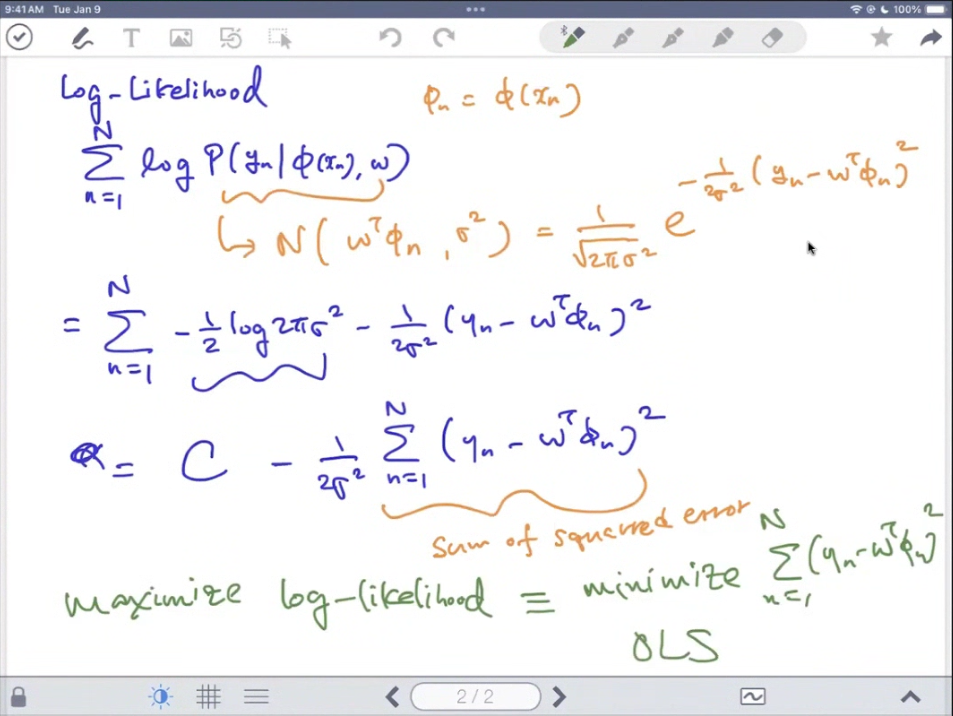 9:41 AM Tue Jan 9 100%
Log-Likelihood
φₙ = φ(xₙ)
∑ₙ₌₁ᴺ log P(yₙ | φ(xₙ), w)
↳ N(wᵀφₙ, σ²) = 1/√2πσ² e^(-1/2σ² (yₙ - wᵀφₙ)²)
= ∑ₙ₌₁ᴺ -1/2 log 2πσ² - 1/2σ² (yₙ - wᵀφₙ)²
= C - 1/2σ² ∑ₙ₌₁ᴺ (yₙ - wᵀφₙ)²
Sum of squarred error
maximize log-likelihood ≡ minimize ∑ₙ₌₁ᴺ (yₙ - wᵀφₙ)²
OLS
2 / 2